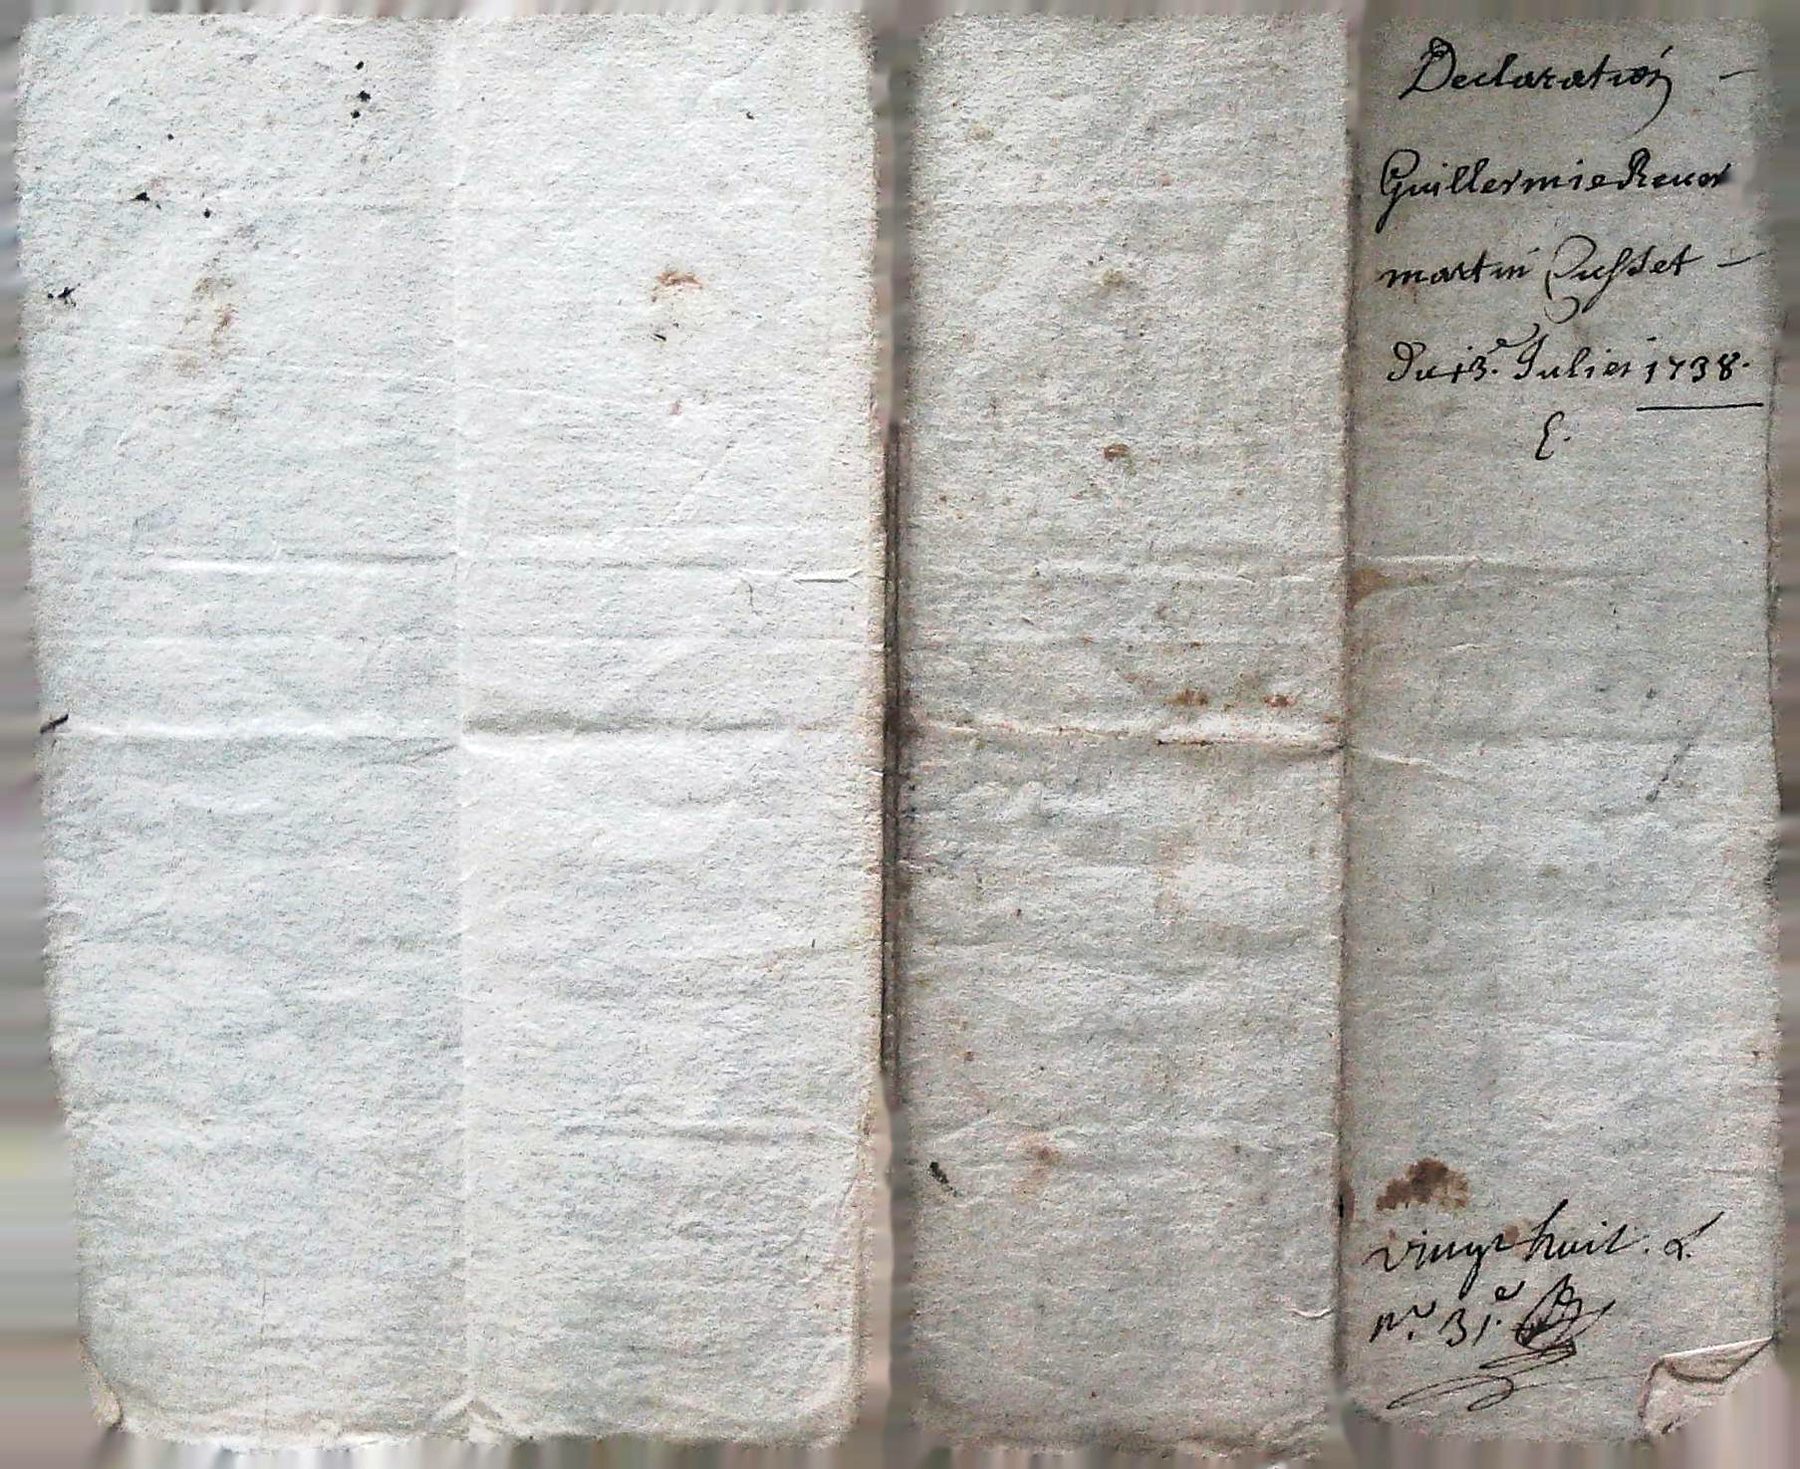 Declaration —
Guillermie Revor
martin Pusset —
Du 13.e Julier 1738.
E.
vingt huit. L.
nr. 31.e